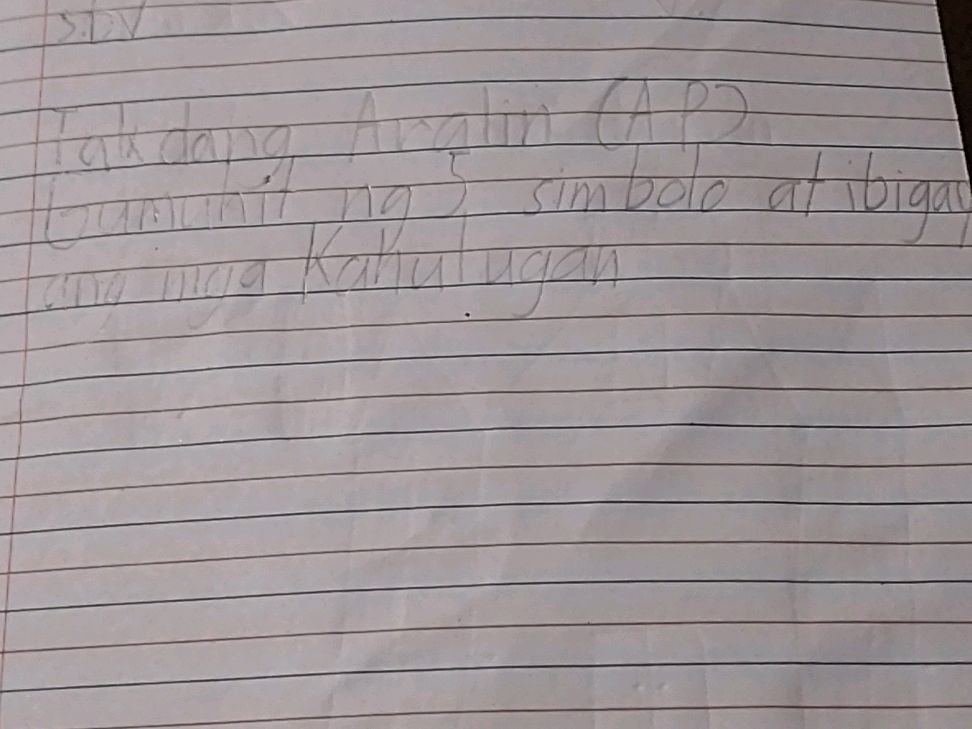 S.D.V
Takdang Aralin (AP)
Gumuhit ng 5 simbolo at ibigay
ang mga Kahulugan